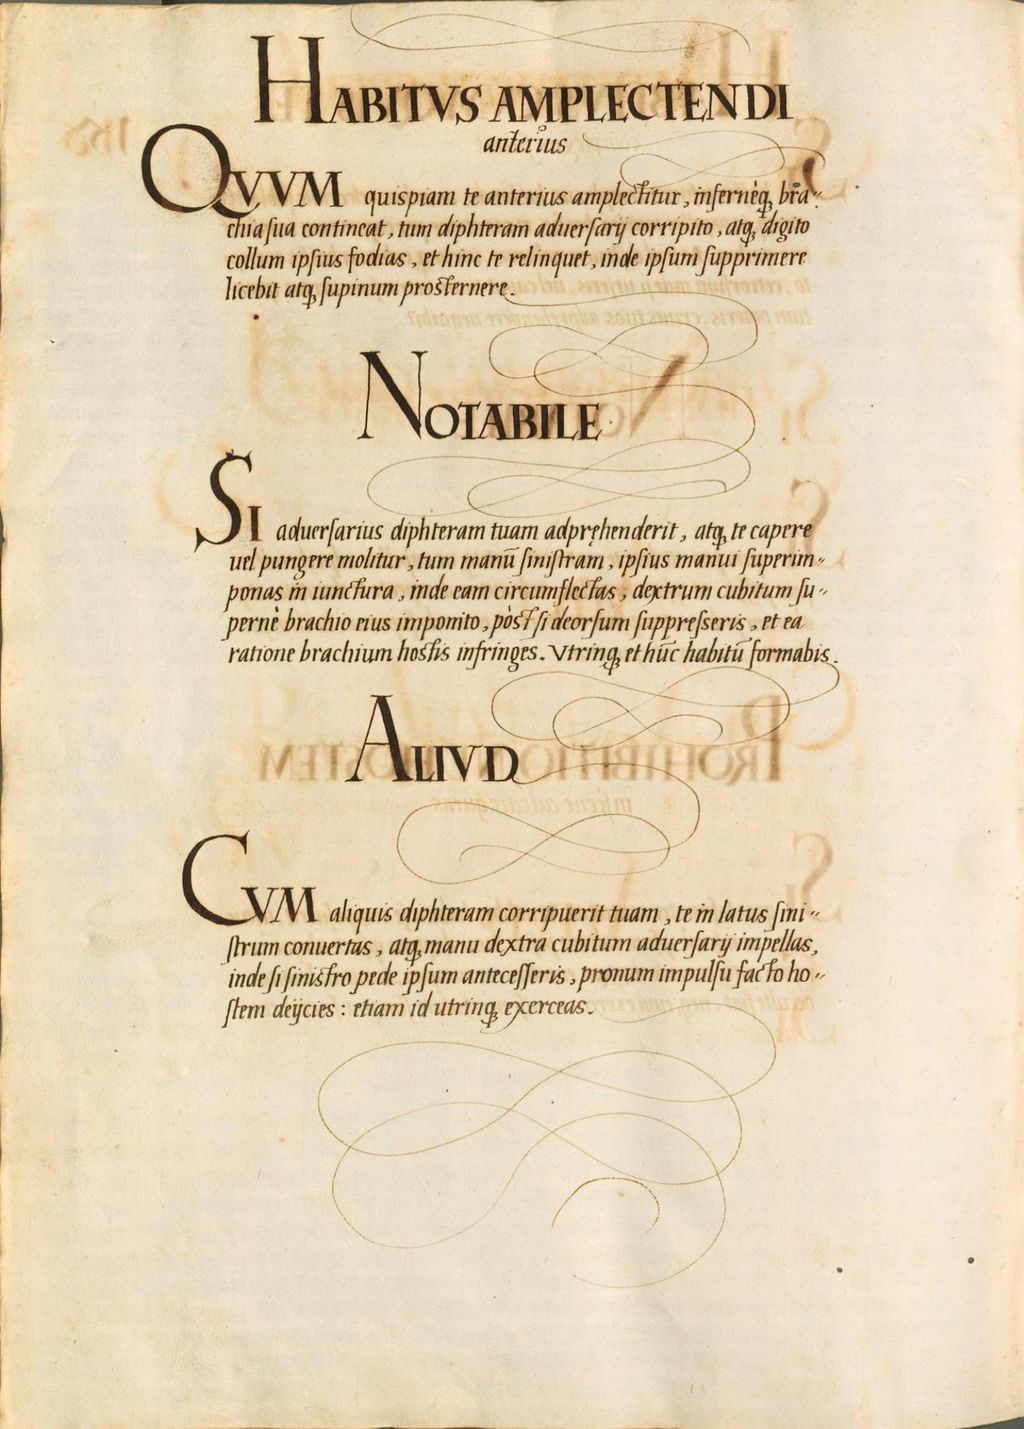 HABITVS AMPLECTENDI
anterius
QVVM quispiam te anterius amplectitur, infernèq, brā„
chia sua contineat, tum diphteram aduersarÿ corripito, atq, digito
collum ipsius fodias, et hinc te relinquet, inde ipsum supprimere
licebit atq, supinum prosternere.
NOTABILE
SI aduersarius diphteram tuam adpręhenderit, atq, te capere
uel pungere molitur, tum manū sinistram, ipsius manui superim„
ponas in iunctura, inde eam circumflectas, dextrum cubitum su„
pernè brachio eius imponito, pòst si deorsum suppresseris, et ea
ratione brachium hostis infringes. Vtrinq, et hūc habitū formabis.
ALIVD
CVM aliquis diphteram corripuerit tuam, te in latus sini„
strum conuertas, atq, manu dextra cubitum aduersarÿ impellas,
inde si sinistro pede ipsum antecesseris, pronum impulsu facto ho„
stem deÿcies: etiam id utrinq, exerceas.